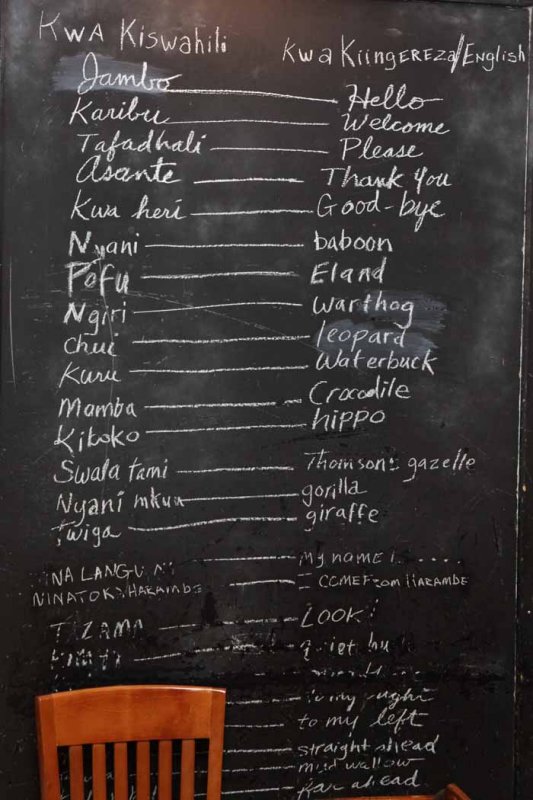 KWA KISWAHILI KWA KIINGEREZA/ENGLISH
Jambo Hello
Karibu Welcome
Tafadhali Please
Asante Thank You
Kwa heri Good-bye
Nyani baboon
Pofu Eland
Ngiri warthog
Chui leopard
Kuru Waterbuck
Mamba Crocodile
Kiboko hippo
Swala tami Thomson's gazelle
Nyani mkuu gorilla
Twiga giraffe
NA LANGU NI my name i.....
NINATOKA HARAMBE I COME From HARAMBE
TAZAMA LOOK!
quiet
to my left
straight ahead
mud wallow
far ahead